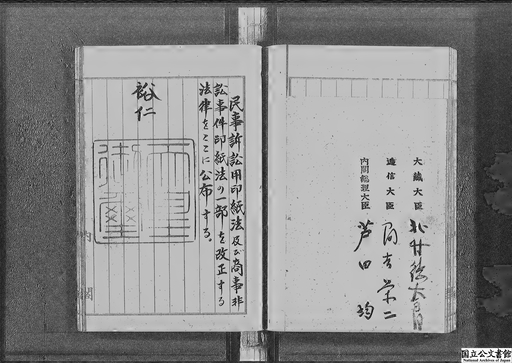 大藏大臣 北村徳太郎
逓信大臣 冨吉榮二
内閣総理大臣 芦田均
民事訴訟用印紙法及び商事非
訟事件印紙法の一部を改正する
法律をここに公布する。
裕仁
天皇
御璽
内閣
国立公文書館
National Archives of Japan